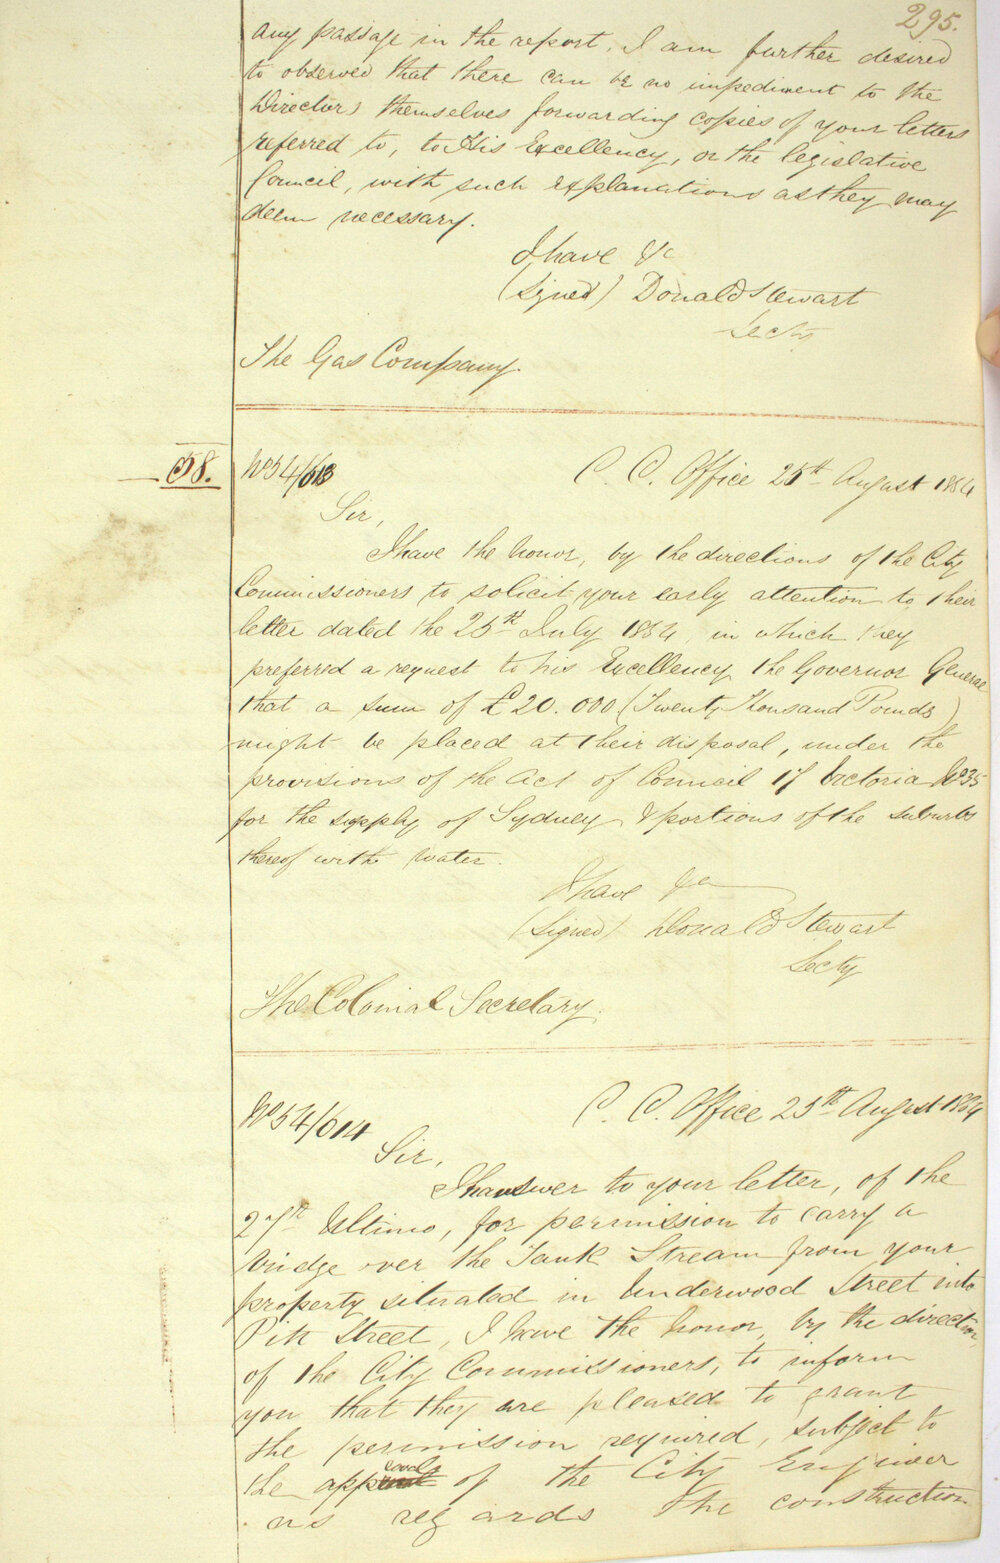 295.
any passage in the report. I am further desired
to observed that there can be no impediment to the
Directors themselves forwarding copies of your letters
referred to, to His Excellency, or the legislative
Council, with such explanations as they may
deem necessary.
I have &c
(Signed) Donald Stewart
Secty
The Gas Company.
58. No 54/613 C. C. Office 25th August 1854
Sir,
I have the honor, by the directions of the City
Commissioners to solicit your early attention to their
letter dated the 25th July 1854, in which they
preferred a request to his Excellency the Governor General
that a sum of £20.000 (Twenty Thousand Pounds)
might be placed at their disposal, under the
provisions of the Act of Council 17 Victoria No 35
for the supply of Sydney & portions of the suburbs
thereof with water.
I have &c
(Signed) Donald Stewart
Secty
The Colonial Secretary.
No 54/614 C. C. Office 25th August 1854
Sir,
In answer to your letter, of the
27th Ultimo, for permission to carry a
bridge over the Tank Stream from your
property situated in Underwood Street into
Pitt Street, I have the honor, by the direction,
of the City Commissioners, to inform
you that they are pleased to grant
the permission required, subject to
the approvals of the City Engineer
as regards the construction